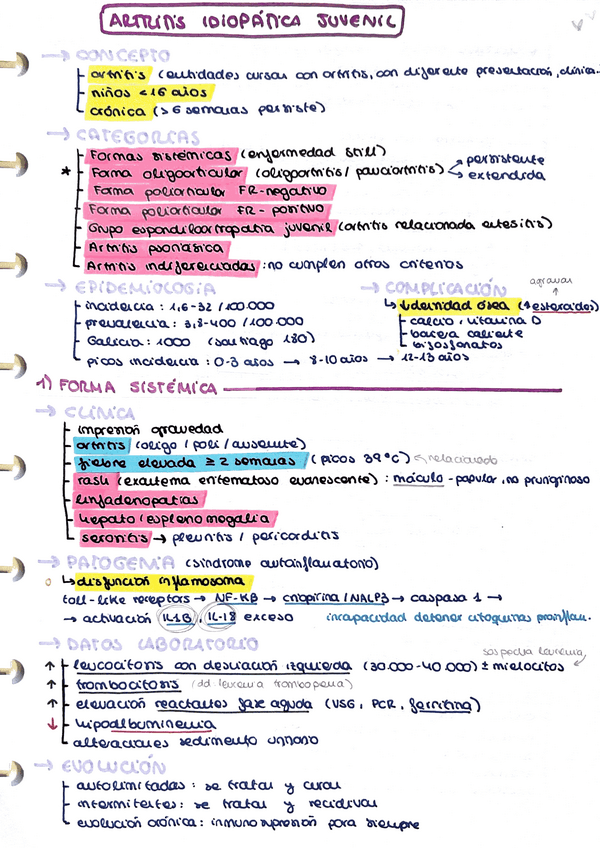 ARTRITIS IDIOPÁTICA JUVENIL
→ CONCEPTO
artritis (entidades cursan con artritis, con diferente presentación, clínica..
niños < 16 años
crónica (> 6 semanas persiste)
→ CATEGORÍAS
Formas sistémicas (enfermedad still)
* Forma oligoarticular (oligoartritis / pauciartritis) persistente
extendida
Forma poliarticular FR-negativo
Forma poliarticular FR-positivo
Grupo espondiloartropatía juvenil (artritis relacionada entesitis)
Artritis psoriásica
Artritis indiferenciadas: no cumplen otros criterios
→ EPIDEMIOLOGÍA
incidencia: 1,6-32 / 100.000
prevalencia: 3,8-400 / 100.000
Galicia: 1000 (santiago 180)
picos incidencia: 0-3 años → 8-10 años → 12-13 años
→ COMPLICACIÓN
agravar
↳ ↓densidad ósea (↑ esteroides)
calcio, vitamina D
bifosfonatos
1) FORMA SISTÉMICA
→ CLÍNICA
impresión gravedad
artritis (oligo / poli / ausente)
fiebre elevada ≥ 2 semanas (picos 39°C) ← relacionado
rash (exantema eritematoso evanescente): máculo-papular, no pruriginoso
linfadenopatías
hepato / esplenomegalia
serositis → pleuritis / pericarditis
→ PATOGENIA (síndrome autoinflamatorio)
↳ disfunción inflamosoma
toll-like receptors → NF-KB → criopirina / NALP3 → caspasa 1 →
→ activación IL1B, IL-18 exceso incapacidad detener citoquinas proinflam.
→ DATOS LABORATORIO
sospecha leucemia
↑ leucocitosis con desviación izquierda (30.000-40.000) ± mielocitos
↑ trombocitosis (dd. leucemia trombopenia)
↑ elevación reactantes fase aguda (VSG, PCR, ferritina)
↓ hipoalbuminemia
alteraciones sedimento urinario
→ EVOLUCIÓN
autolimitadas: se tratan y curan
intermitentes: se tratan y recidivan
evolución crónica: inmunosupresión para siempre